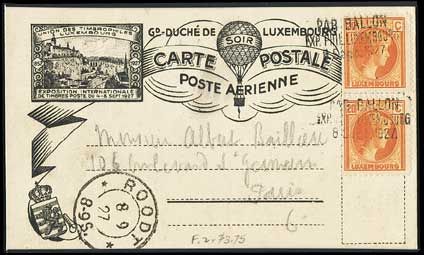 UNION DES TIMBROPHILES
LUXEMBOURG
EXPOSITION INTERNATIONALE
DE TIMBRES POSTE DU 4-8 SEPT 1927
GD-DUCHÉ DE LUXEMBOURG
SOIR
CARTE POSTALE
POSTE AÉRIENNE
PAR BALLON
LUXEMBOURG
PAR BALLON
LUXEMBOURG
Monsieur Albert Baillière
boulevard St Germain
Paris
6
ROODT
8 9
27
8-9S
F.2-73.75